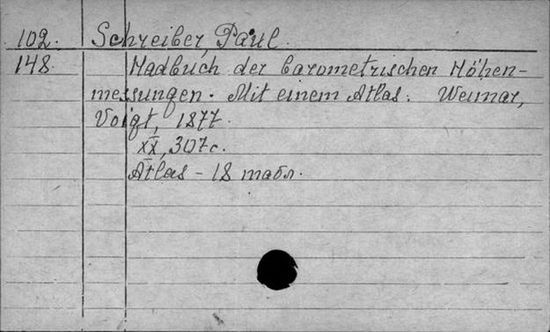 102. Schreiber, Paul.
148. Hadbuch der barometrischen Höhen-
messungen. Mit einem Atlas. Weimar,
Voigt, 1877.
XX, 307 с.
Atlas - 18 табл.